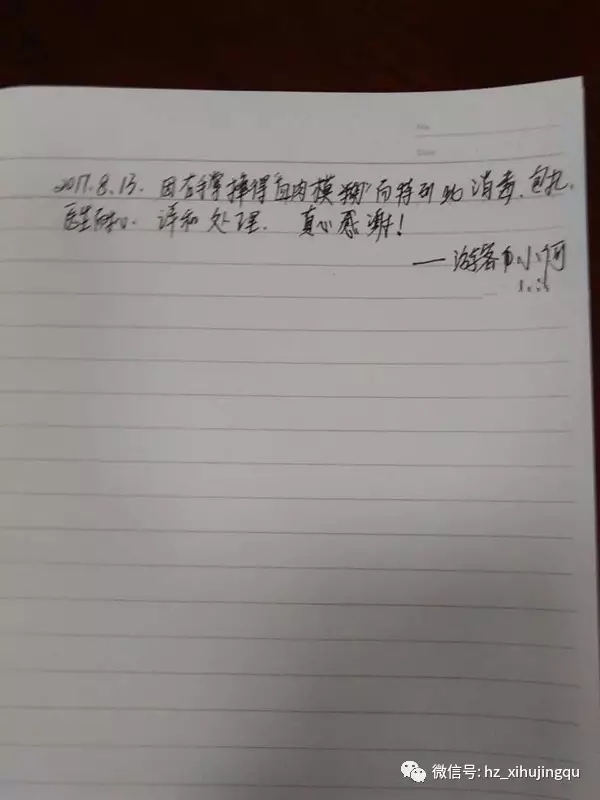 No.
Date
2017.8.13. 因右手掌摔得"血肉模糊"而特到此消毒、包扎.
医生耐心、详和处理. 真心感谢!
——游客 小何
微信号: hz_xihujingqu